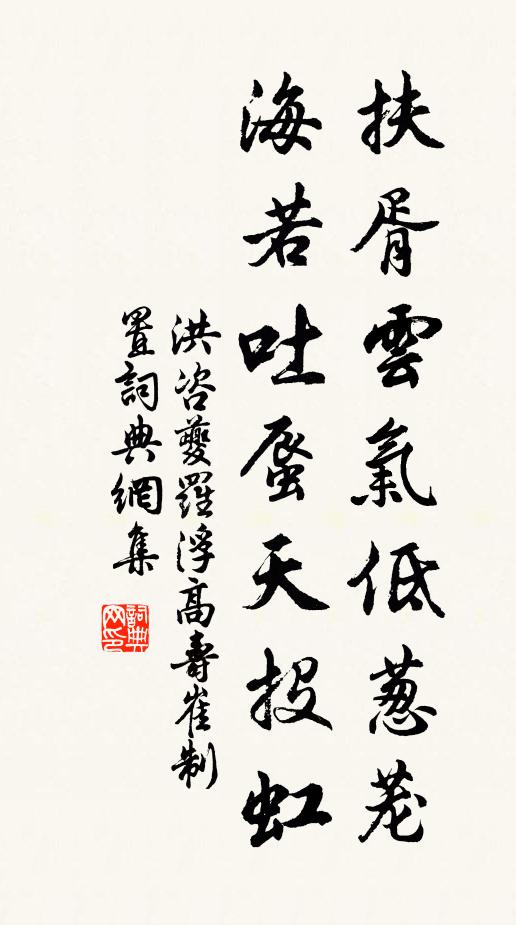 扶胥雲氣低蔥蘢
海若吐蜃天投虹
洪咨夔羅浮高壽崔制
置詞典網集
詞典
网印